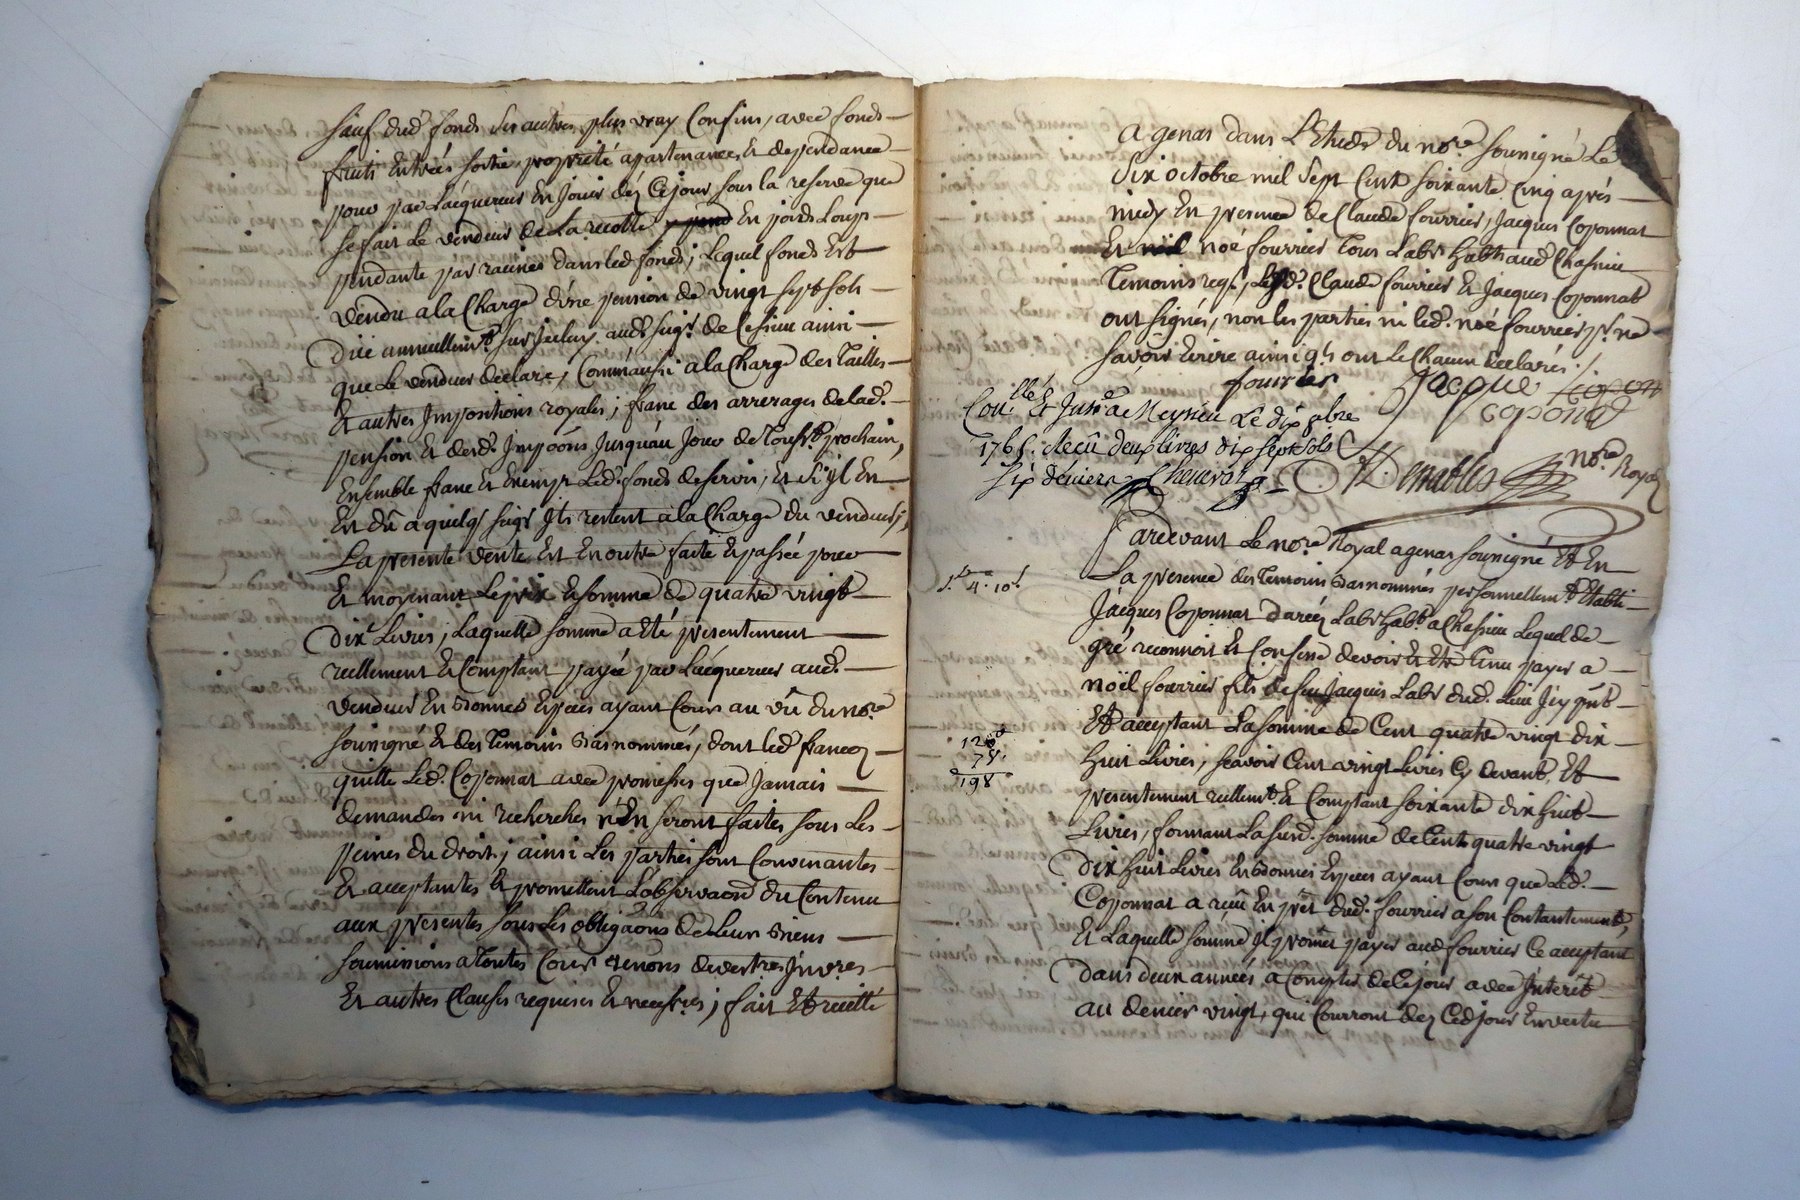 sauf dud.' fonds ses autres plus vray Confins, avec fonds
fruits Entrées sortie propriété apartenances Et dependance
pour par L'acquereur En Jouir dez Ce jour sous la reserve que
se fait Le vendeur de La recolte En poids Loups
pendante par racines dans led. fonds; Lequel fonds Est
vendu a la Charge d'une pension de vingt sept sols
Düe annuellem.t sur Jceluy aud. seig.r de ainsi
que Le vendeur declare, Comm'aussi a la Charge des Tailles
Et autres Jmpositions royales; franc des arrerages de lad.e
pension Et desd. Jmpôons Jusqu'au Jour de Touss.ts prochain,
Ensemble franc Et Exempt Led. fonds de servis, Et s'jl En
Est dû a quelq.s seig.rs Jls restent a la Charge du vendeur;
La presente vente Est En outre faite Et passée pour
Et moyennant Le prix Et somme de quatre vingt
Dix Livres, Laquelle somme a Eté presentement
reellement Et Comptant payée par L'acquereur aud.
vendeur En Bonnes Especes ayant Cours au vû du no.re
sousigné Et des Temoins Basnommés, dont led. francoz
quitte Led. Coponnat avec promesses que Jamais
demandes ni recherches n'En seront faites sous Les
peines du droit; ainsi Les parties sont Convenantes
Et acceptantes Et promettent L'observaon du Contenu
aux presentes sous Les obligaons de Leurs Biens
soumissions a Toutes Cours renons
Et autres Clauses requises Et necess.res; fait Et recitté
a genas dans L'Etude du no.re sousigné Le
Six octobre mil Sept Cent soixante Cinq après
midy En presence de Claude fourrier, Jacques Coponnat
Et noé fourrier Tous Lab.rs hab.ts aud. Chassieu
Temoins req.s, Lesd. Claude fourrier Et Jacques Coponnat
ont signés, non les parties ni led. noé fourrier p.r ne
savoir Ecrire ainsi q.ls ont Le Chacun declarés.
fourrier Jacque
coponat
Con.llé Et Jnsi.é a Meyzieu Le dix 8bre
1765. Reçu deux livres dix sept sols
six deniers
no.re Royal
Pardevant Le no.re Royal a genas sousigné Et En
La presence des Temoins Basnommés personnellem.t Etabli
4. 10.s
Jacques Coponnat Lab.r hab.t a Chassieu Lequel de
gré reconnoit Et Confesse devoir Et Etre Tenu payer a
noël fourrier fils de feu Jacques Lab.r dud. Lieu Jcy pnt
Et acceptant La somme de Cent quatre vingt dix
120
78.
198
huit Livres, scavoir Cent vingt Livres Cy devant, Et
presentement reellem.t Et Comptant soixante dix huit
Livres, formant La susd. somme de Cent quatre vingt
Dix huit Livres En Bonnes Especes ayant Cours que Led.
Coponnat a reçu En prêt dud. fourrier a son Contantement,
Et Laquelle somme Jl promet payer aud. fourrier Ce acceptant
Dans deux années a Compter de Ce jour avec Jnterêt
au denier vingt, qui Courront dez Ced. jour En vertu